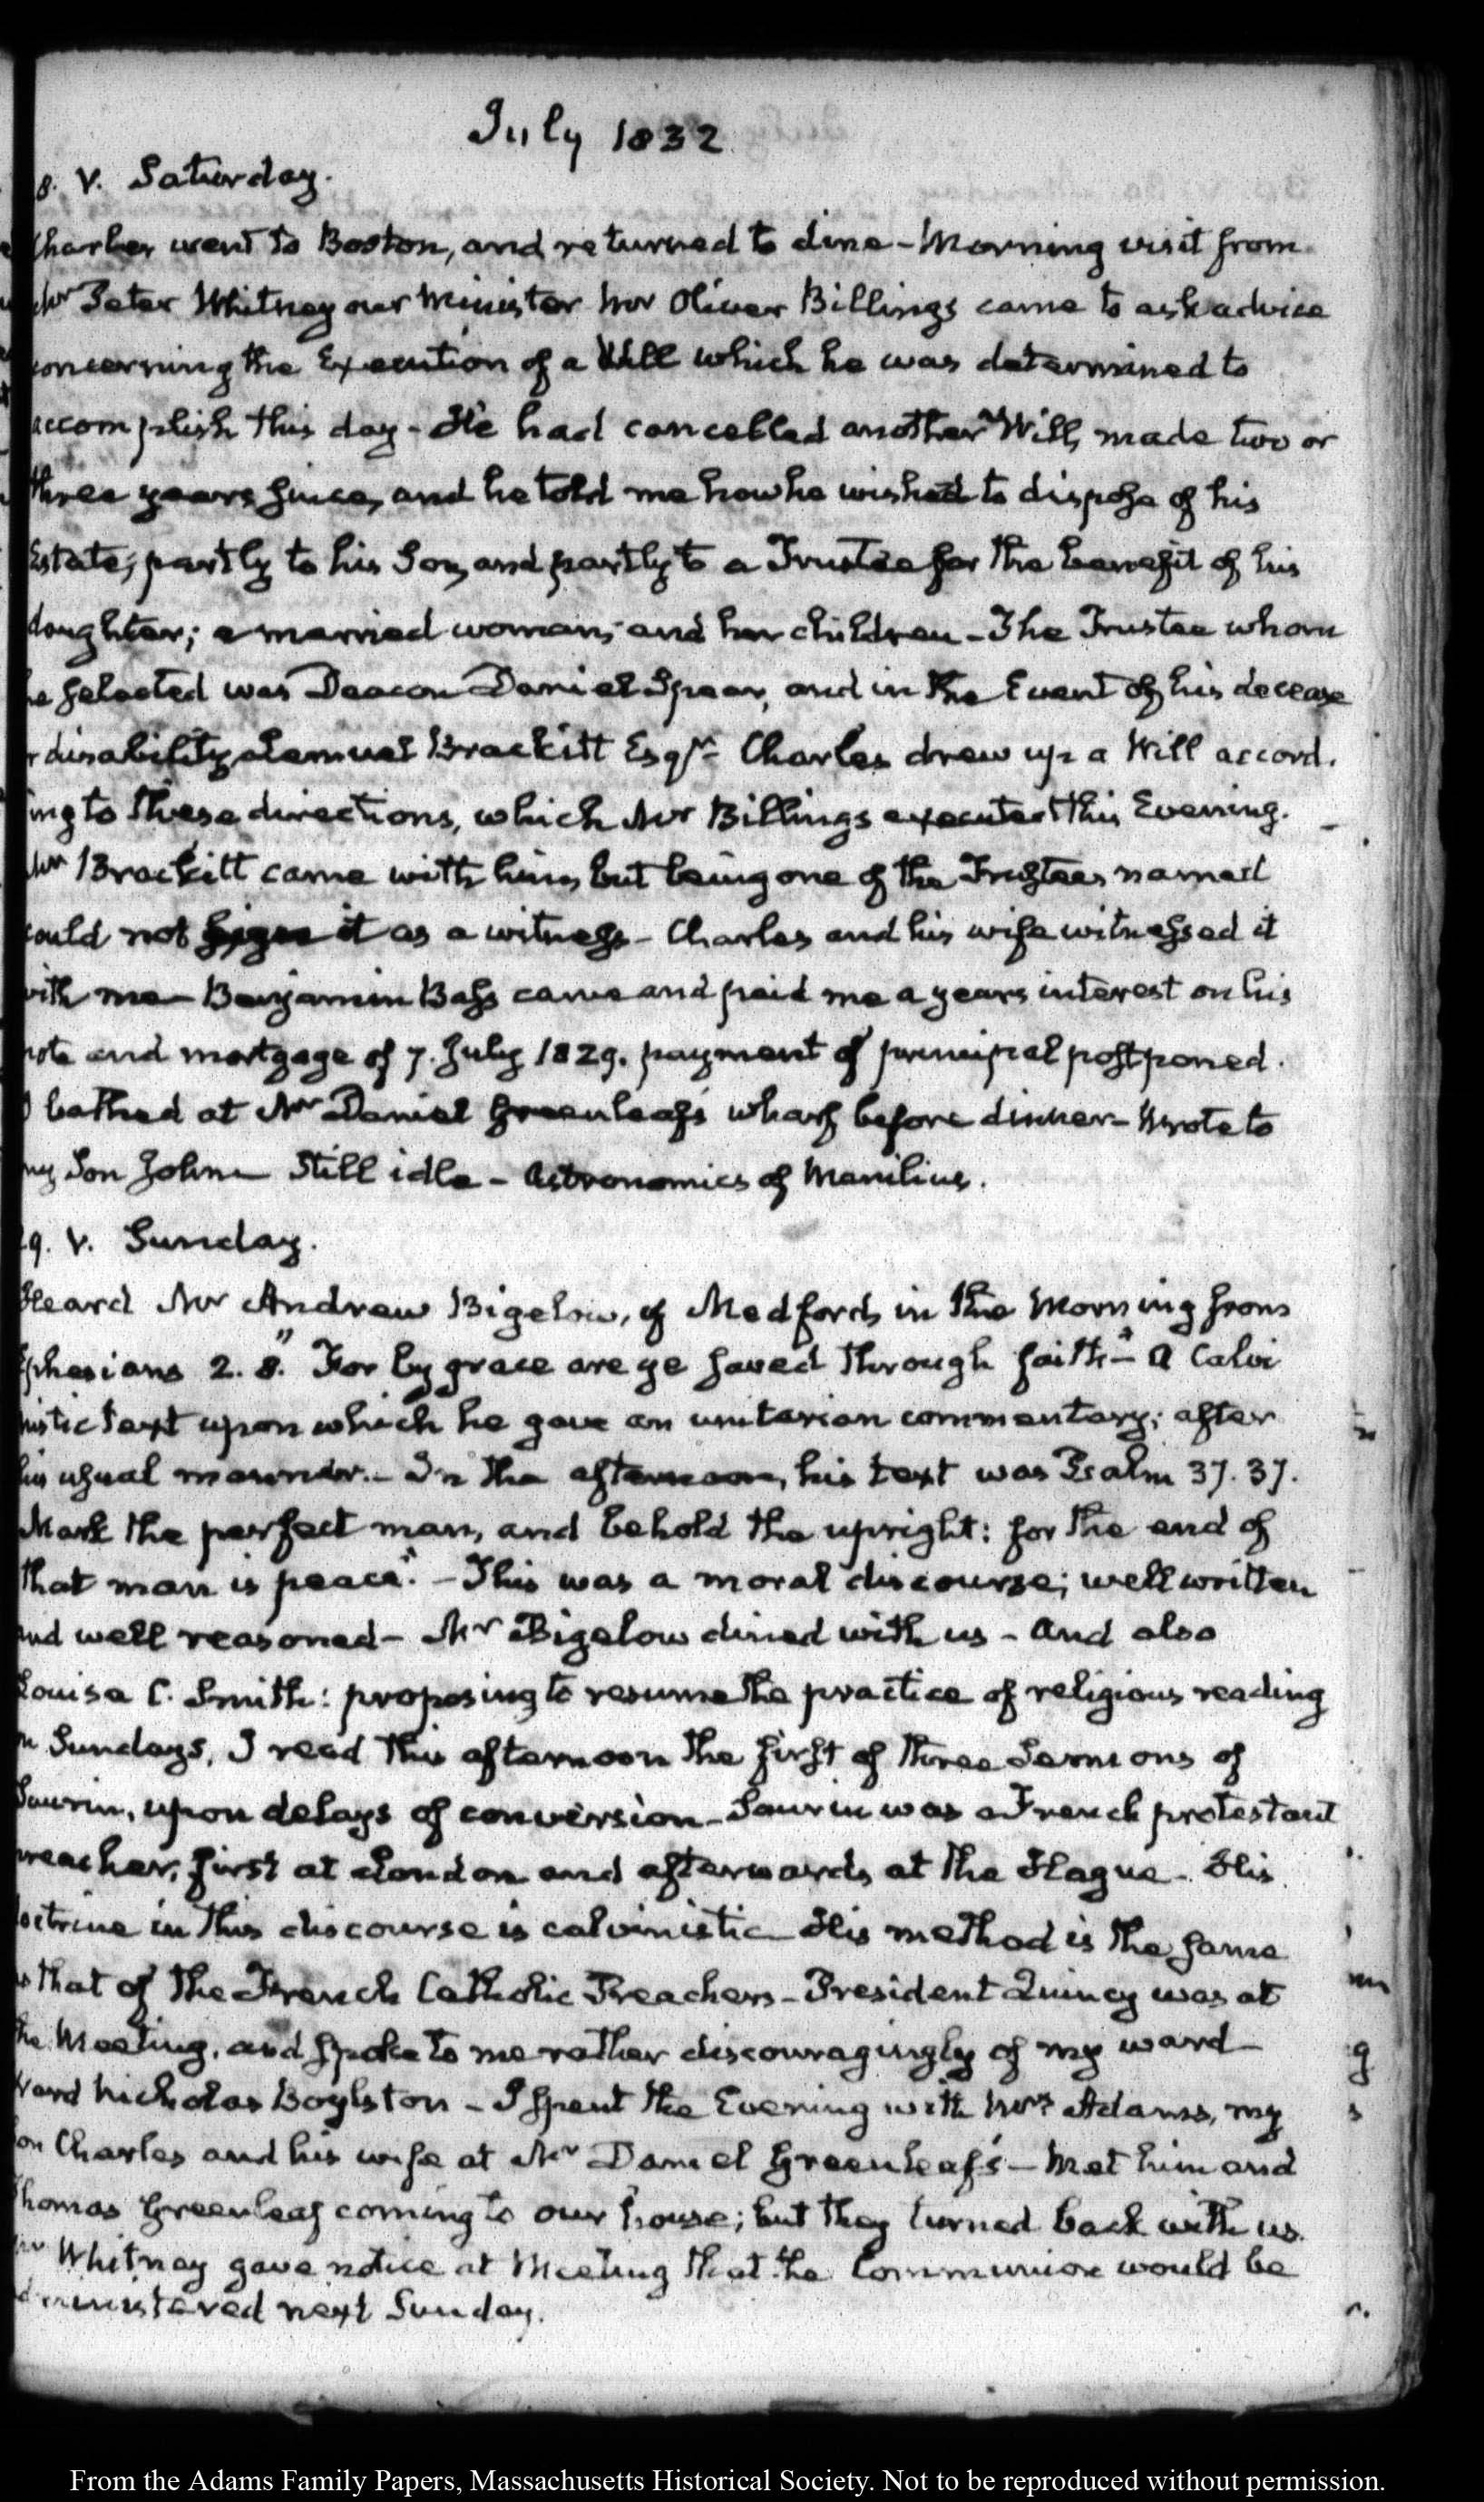 July 1832
8. V. Saturday.
Charles went to Boston, and returned to dine - Morning visit from
Mr Peter Whitney our Minister Mr Oliver Billings came to ask advice
concerning the Execution of a Will which he was determined to
accomplish this day - He had cancelled another Will, made two or
three years since, and he told me how he wished to dispose of his
Estate; partly to his Son, and partly to a Trustee for the benefit of his
daughter; a married woman; and her children - The Trustee whom
he selected was Deacon Daniel Spear, and in the Event of his decease
r disability Lemuel Brackitt Esqr - Charles drew up a Will accord.
ing to these directions, which Mr Billings executed this Evening.
Mr Brackitt came with him, but being one of the Trustees named
could not sign it as a witness - Charles and his wife witnessed it
with me - Benjamin Bass came and paid me a years interest on his
note and mortgage of 7. July 1829. payment of principal postponed.
I bathed at Mr Daniel Greenleaf's wharf before dinner - Wrote to
my Son John - Still idle - Astronomics of Manilius.
29. V. Sunday.
Heard Mr Andrew Bigelow, of Medford, in the Morning from
Ephesians 2. 8. "For by grace are ye saved through faith" - A Calvi
nistic text upon which he gave an unitarian commentary; after
his usual manner. - In the afternoon, his text was Psalm 37. 37.
Mark the perfect man, and behold the upright: for the end of
that man is peace." - This was a moral discourse; well written
and well reasoned - Mr Bigelow dined with us - and also
Louisa C. Smith: proposing to resume the practice of religious reading
on Sundays, I read this afternoon the first of three Sermons of
Saurin, upon delays of conversion - Saurin was a French protestant
preacher, first at London and afterwards at the Hague - His
doctrine in this discourse is calvinistic - His method is the same
as that of the French Catholic Preachers - President Quincy was at
the Meeting, and spoke to me rather discouragingly of my ward -
Ward Nicholas Boylston - I spent the Evening with Mrs Adams, my
Son Charles and his wife at Mr Daniel Greenleaf's - Met him and
Thomas Greenleaf coming to our house; but they turned back with us.
Mr Whitney gave notice at Meeting that the Communion would be
administered next Sunday.
From the Adams Family Papers, Massachusetts Historical Society. Not to be reproduced without permission.